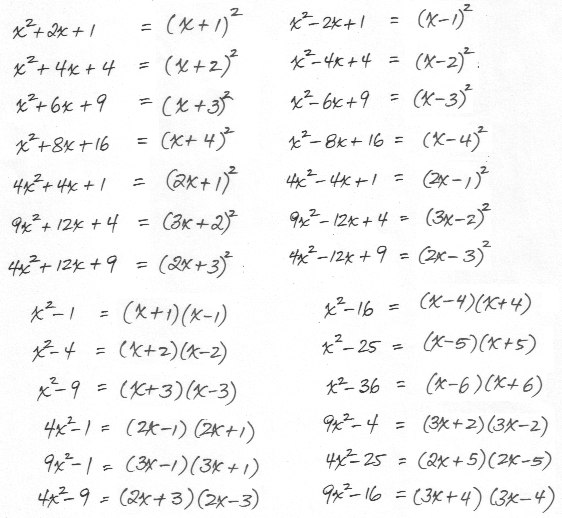 x²+2x+1 = (x+1)²
x²+4x+4 = (x+2)²
x²+6x+9 = (x+3)²
x²+8x+16 = (x+4)²
4x²+4x+1 = (2x+1)²
9x²+12x+4 = (3x+2)²
4x²+12x+9 = (2x+3)²
x²-2x+1 = (x-1)²
x²-4x+4 = (x-2)²
x²-6x+9 = (x-3)²
x²-8x+16 = (x-4)²
4x²-4x+1 = (2x-1)²
9x²-12x+4 = (3x-2)²
4x²-12x+9 = (2x-3)²
x²-1 = (x+1)(x-1)
x²-4 = (x+2)(x-2)
x²-9 = (x+3)(x-3)
4x²-1 = (2x-1)(2x+1)
9x²-1 = (3x-1)(3x+1)
4x²-9 = (2x+3)(2x-3)
x²-16 = (x-4)(x+4)
x²-25 = (x-5)(x+5)
x²-36 = (x-6)(x+6)
9x²-4 = (3x+2)(3x-2)
4x²-25 = (2x+5)(2x-5)
9x²-16 = (3x+4)(3x-4)